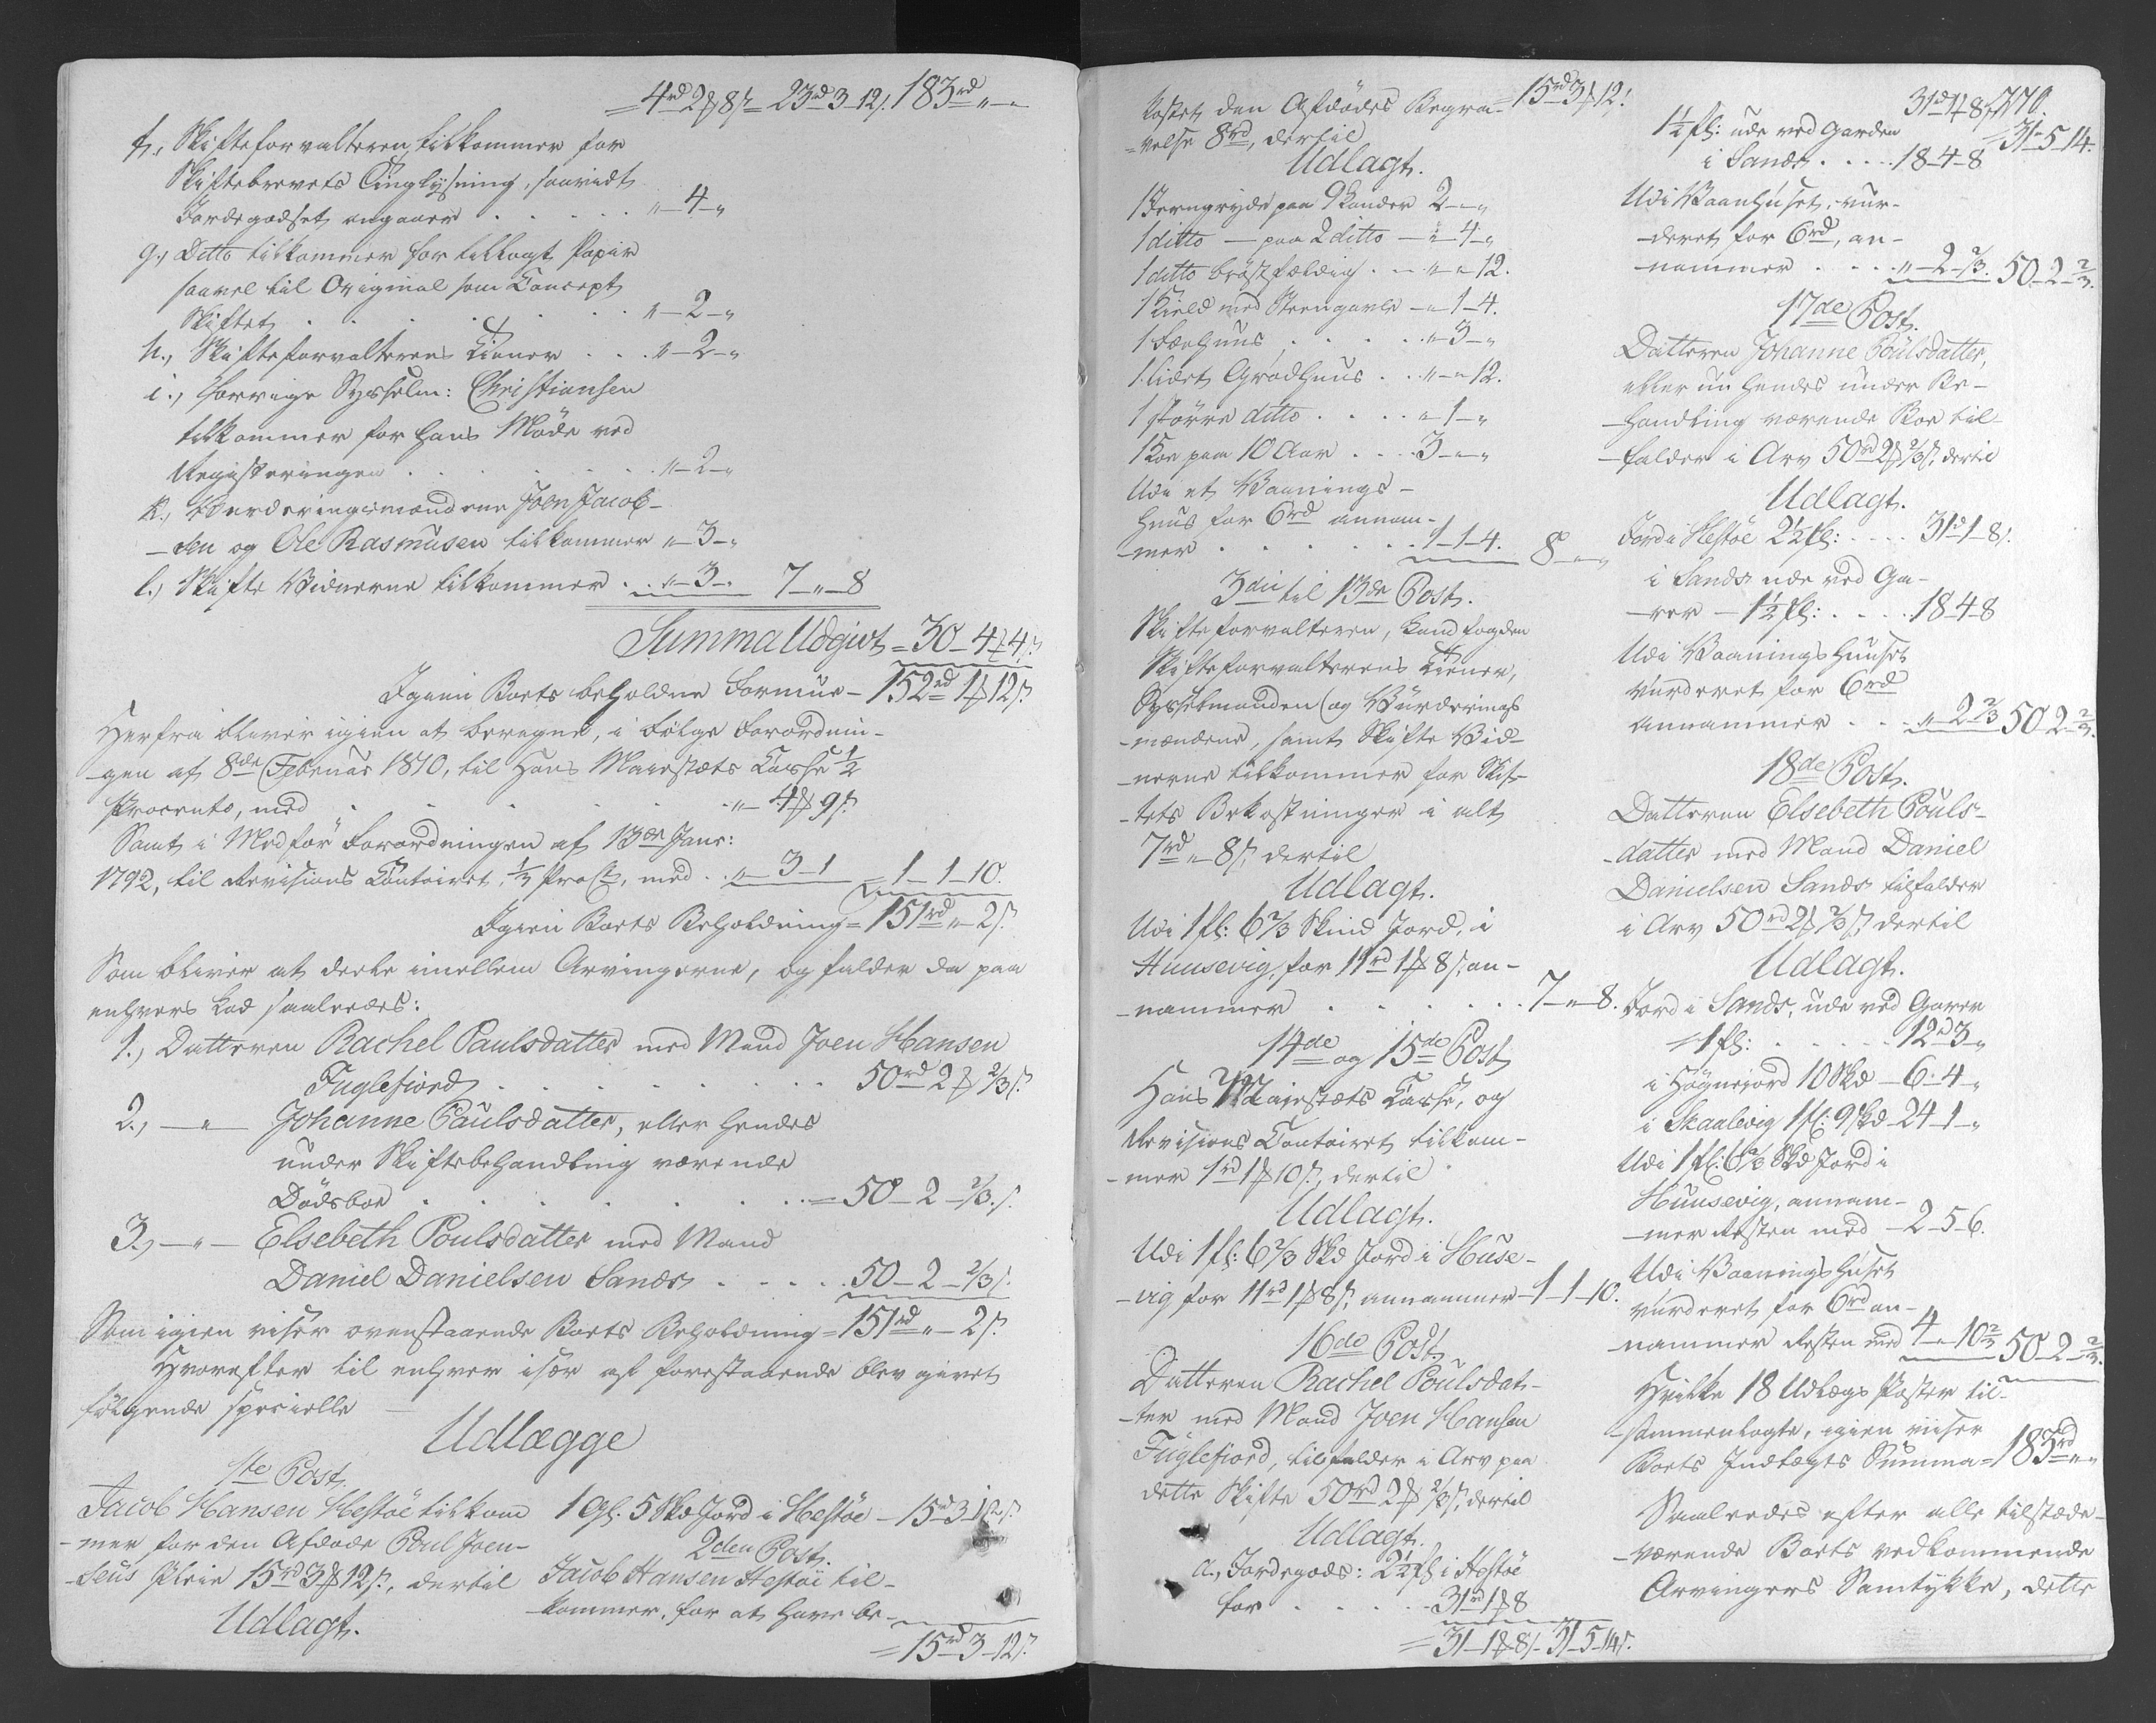 = 4rd 2 ₻ 8 s = 23rd 3 - 12 s. 183rd „ -
f., Skifteforvalteren tilkommer for
Skiftebrevets Tinglysning, saavidt
Jordegodset angaaer . . . . . „ - 4 - „
g., Ditto tilkommer for tillagt Papir
saavel til Original som Concept
Skiftet . . . . . . . „ - 2 - „
h., Skifteforvalterens Tiener . . . „ - 2 - „
i., forrige Sysselm: Christiansen
tilkommer for hans Möde ved
Registeringen . . . . . . „ - 2 - „
k., Vurderingsmændene Joen Jacob-
-sen og Ole Rasmusen tilkommer „ - 3 - „
l., Skifte Vidnerne tilkommer . . „ - 3 - „ 7 - „ - 8
Summa Udgivt = 30 - 4 ₻ 4 s.
Igien Boets beholdne Formue - 152rd 1 ₻ 12 s.
Herfra bliver igien at beregne, i fölge Forordnin-
-gen af 8de Februar 1810, til Hans Maiestæts Casse 1/2
Procento, med . . . . . . „ - 4 ₻ 9 s.
Samt i Medför Forordningen af 13de Janr:
1792, til Revisions Contoiret, 1/3 ProCt, med . . „ - 3 - 1 = 1 - 1 - 10.
Igien Boets Beholdning = 151rd „ - 2 s.
Som bliver at deele imellem Arvingerne, og falder da paa
enhvers Lod saaledes:
1., Datteren Rachel Paulsdatter med Mand Joen Hansen
Fuglefiord . . . . . . . 50rd 2 ₻ 2/3 s.
2., - „ - Johanne Paulsdatter, eller hendes
under Skiftebehandling værende
Dödsboe . . . . . . . = 50 - 2 - 2/3 s.
3., - „ - Elsebeth Poulsdatter med Mand
Daniel Danielsen Sands . . . . 50 - 2 - 2/3 s.
Som igien viser ovenstaaende Boets Beholdning = 151rd „ - 2 s.
Hvorefter til enhver især af forestaaende blev givet
fölgende specielle
Udlægge
1te Post.
Jacob Hansen Hestöe tilkom
-mer for den Afdöde Poul Joen-
-sens Pleie 15rd 3 ₻ 12 s., dertil
Udlagt.
1 Gl. 5 Skd Jord i Hestöe - 15rd 3 - 12 s.
2den Post.
Jacob Hansen Hestöe til-
-kommer, for at have be-
= 15rd 3 - 12 s.
kostet den Afdödes Begra- = 15rd 3 ₻ 12.
-velse 8rd, dertil
Udlagt.
1 Jerngryde paa 9 Kander 2 - „ - „
1 ditto - paa 2 ditto - „ - 4 - „
1 ditto bröstfældig . . - „ - „ 12.
1 Kield med Steengavle - „ - 1 - 4.
1 Fæehuus . . . . . „ - 3 - „
1 lidet Grodhuus . . „ - „ 12.
1 större ditto . . . . „ - 1 - „
1 Koe paa 10 Aar . . . . 3 - „ - „
Udi et Vaanings-
huus for 6rd annam-
-mer . . . . . . 1 - 1 - 4. 8 - „ - „
3die til 13de Post.
Skifteforvalteren, Landfogden
Skifteforvalterens Tiener,
Sysselmanden og Vurderings
-mændene, samt Skifte Vid-
-nerne tilkommer for Skif-
-tets Bekostninger i alt
7rd „ 8 s., dertil
Udlagt.
Udi 1 fl: 6 2/3 Skind Jord, i
Huusevig, for 11rd 1 ₻ 8 s., an-
-nammer . . . . . . 7 - „ - 8.
14de og 15de Post
Hans Maiestæts Casse, og
Revisions Contoiret tilkom-
-mer 1rd 1 ₻ 10 s., dertil
Udlagt.
Udi 1 fl: 6 2/3 Skd Jord i Huse-
-vig for 11rd 1 ₻ 8 s., annammer - 1 - 1 - 10.
16de Post.
Datteren Rachel Poulsdat-
-ter med Mand Joen Hansen
Fuglefiord, tilfalder i Arv paa
dette Skifte 50rd 2 ₻ 2/3 s., dertil
Udlagt.
a., Jordegods: 2 1/2 fl i Hestöe
for . . . . . . 31rd 1 ₻ 8
= 31 - 1 ₻ 8 s - 31 - 5 - 14 s.
31rd 1 ₻ 8 s. 770.
1 1/2 fl: ude ved Garden = 31 - 5 - 14.
i Sands . . . . . 18 - 4 - 8
Udi Vaanhuset, vur-
-deret for 6rd, an-
-nammer . . . . „ - 2 - 2/3. 50 - 2 - 2/3.
17de Post.
Datteren Johanne Poulsdatter,
eller nu hendes under Be-
-handling værende Boe til-
-falder i Arv 50rd 2 ₻ 2/3 s., dertil
Udlagt.
Jord i Hestöe 2 1/2 fl: . . . . 31rd 1 - 8 s.
i Sands ude ved Ga-
-rer - 1 1/2 fl: . . . . 18 - 4 - 8
Udi Vaaningshuuset
vurderet for 6rd
annammer . . . „ - 2 - 2/3 50 - 2 - 2/3.
18de Post.
Datteren Elsebeth Pouls-
-datter med Mand Daniel
Danielsen Sands tilfalder
i Arv 50rd 2 ₻ 2/3 s., dertil
Udlagt.
Jord i Sands, ude ved Garer
= 1 fl: . . . . . . 12rd 3 - „
i Högnejord 10 Skd - 6 - 4 - „
i Skaalevig 1 fl: 9 Skd - 24 - 1 - „
Udi 1 fl: 6 2/3 Skd Jord i
Huusevig, annam-
-mer Resten med - 2 - 5 - 6.
Udi Vaaningshuset
vurderet for 6rd an-
-nammer Resten med 4 - „ - 10 2/3 50 - 2 - 2/3.
Hvilke 18 Udlægs Poster til-
-sammenlagte, igien viiser
Boets Indtægts Summa = 183rd „ „
Saaledes efter alle tilstæde-
-værende Boets vedkommende
Arvingers Samtykke, dette